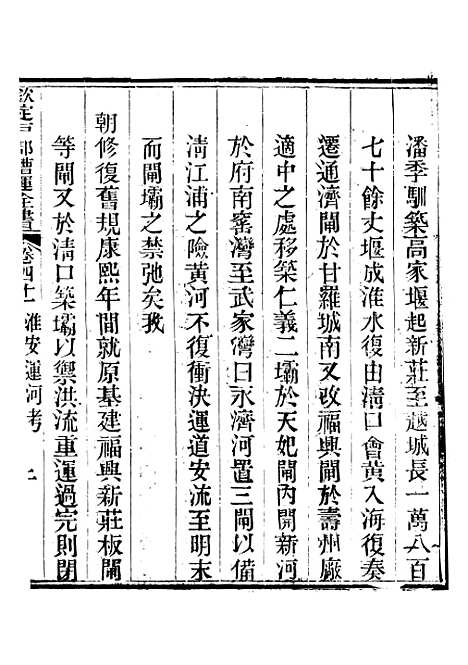 潘季馴築高家堰起新莊至越城長一萬八百
七十餘丈堰成淮水復由清口會黃入海復奏
遷通濟閘於甘羅城南又改福興閘於壽州廠
適中之處移築仁義二壩於天妃閘內開新河
於府南窰灣至武家灣曰永濟河置三閘以備
清江浦之險黃河不復衝決運道安流至明末
而閘壩之禁弛矣我
朝修復舊規康熙年間就原基建福興新莊板閘
等閘又於清口築壩以禦洪流重運過完則閉
欽定戶部漕運全書 卷四十一 淮安運河考 上